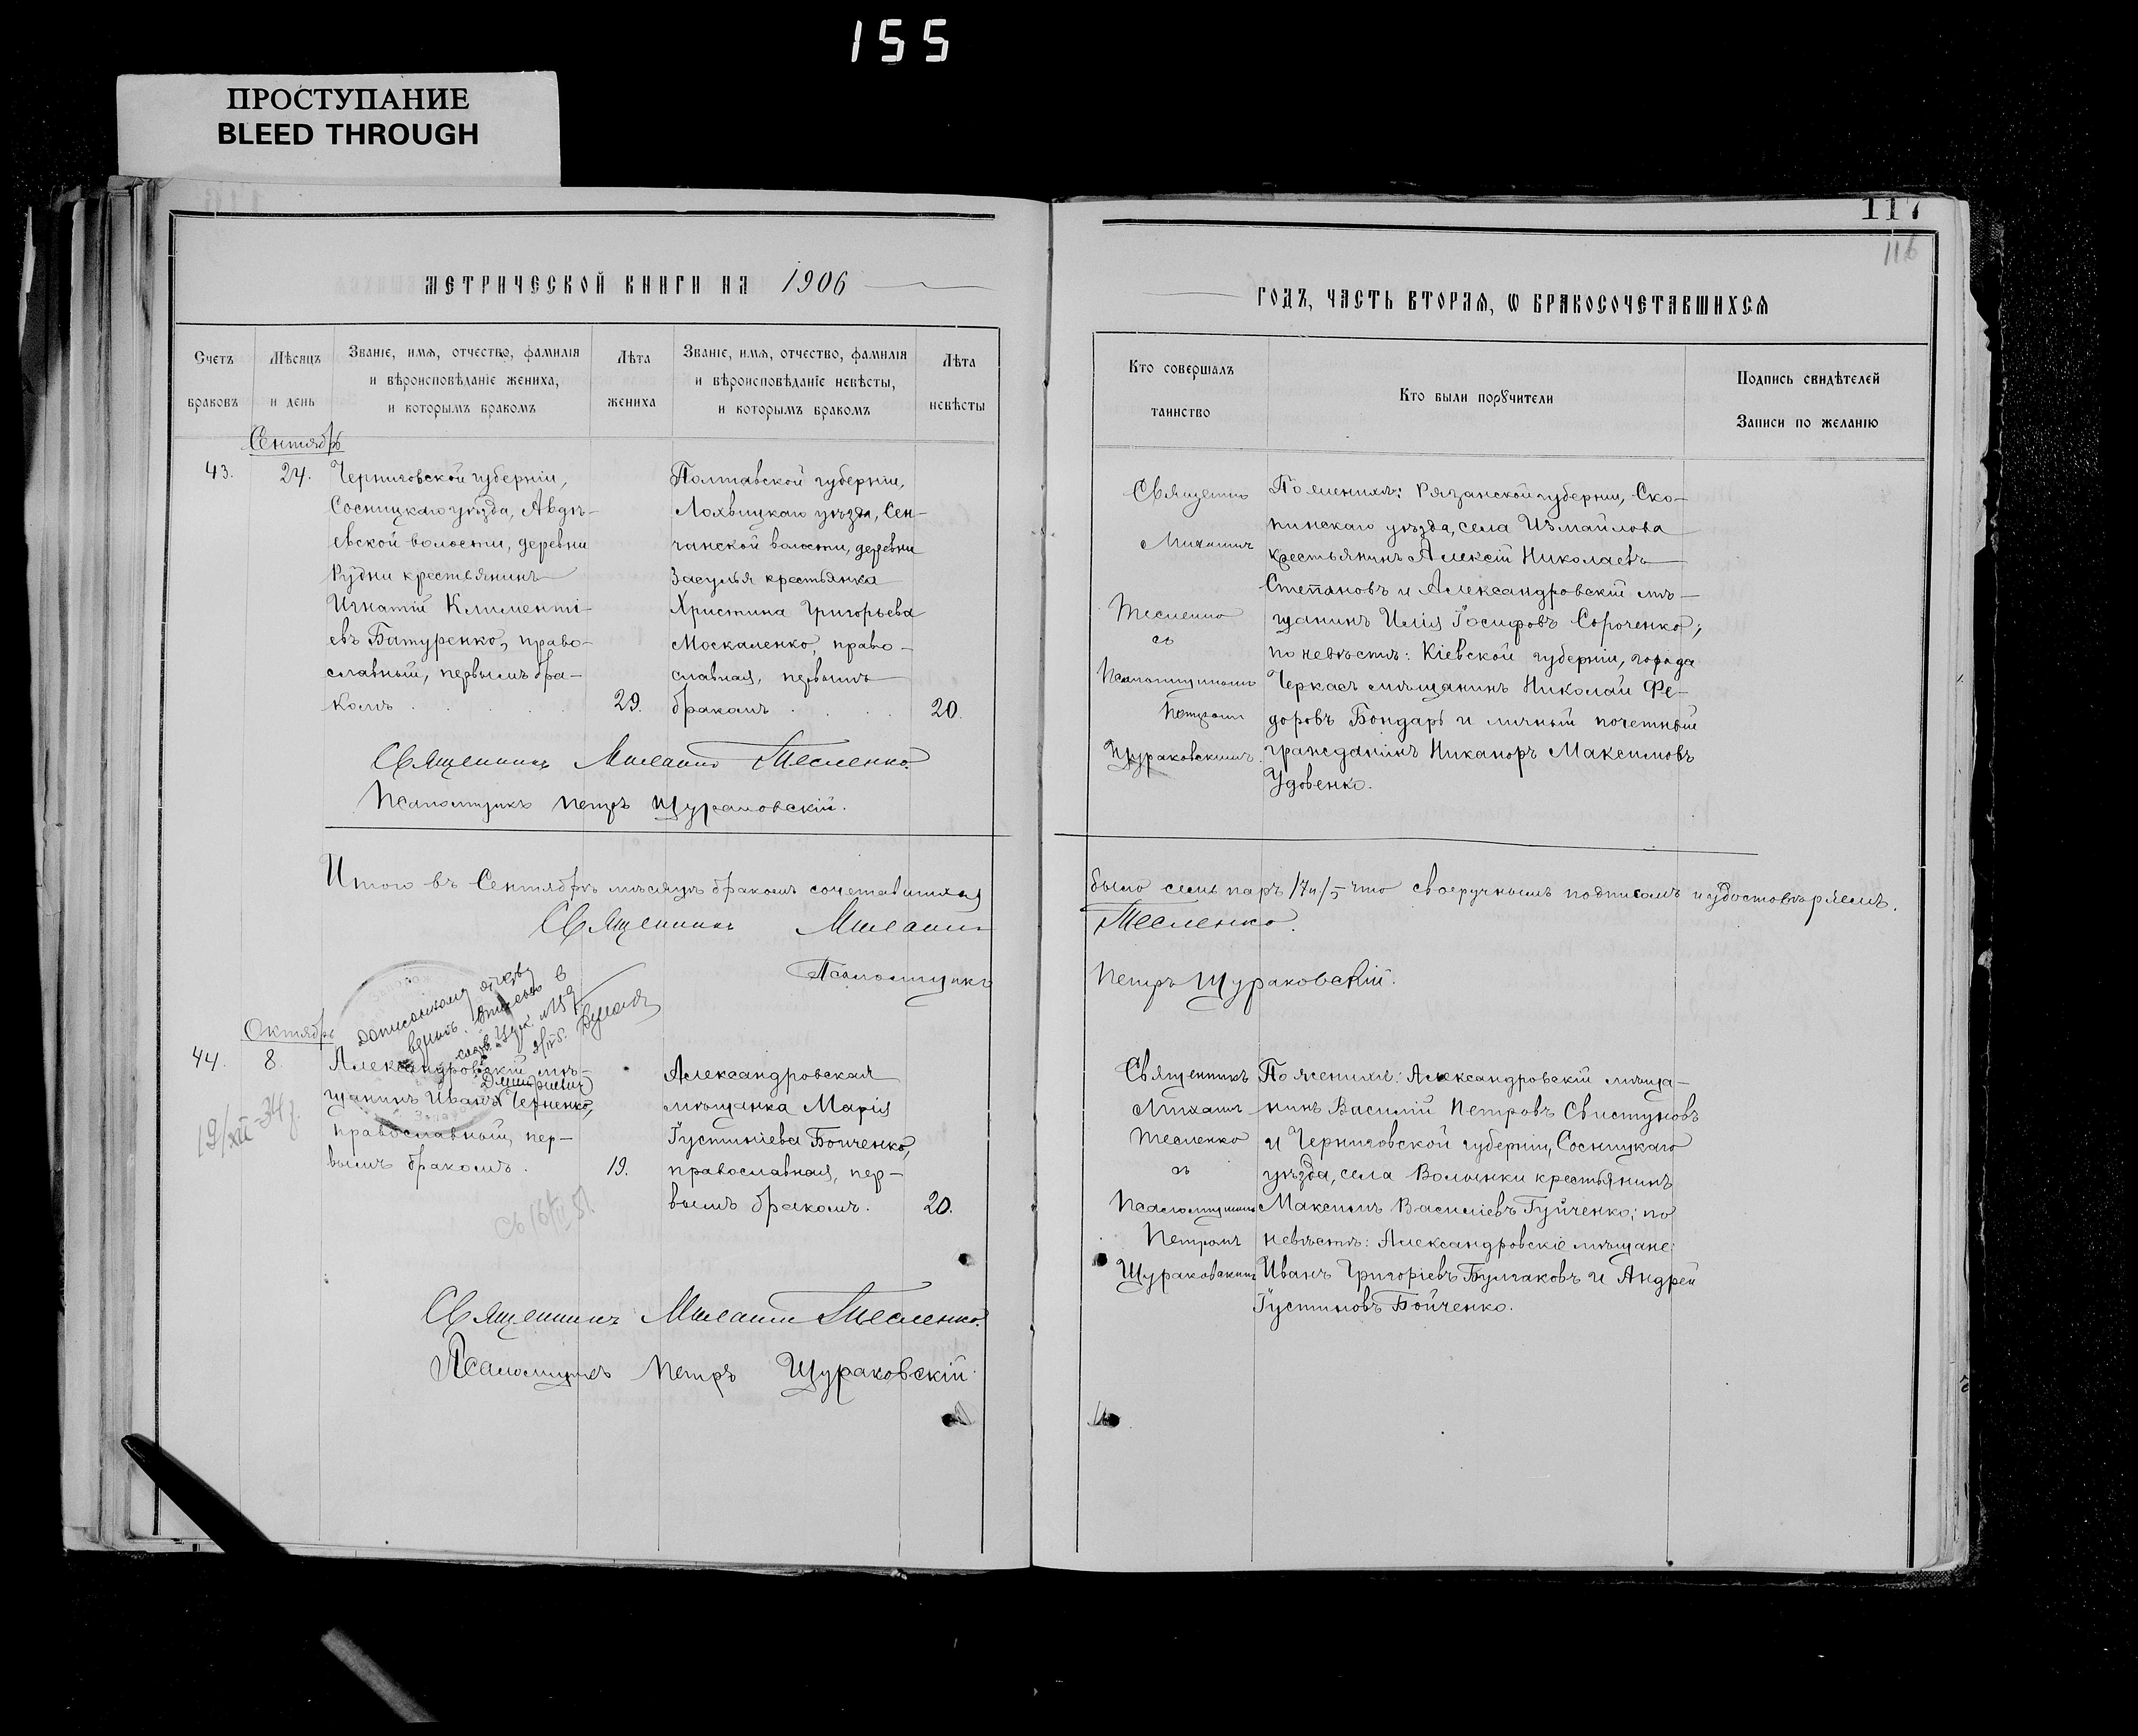 155
ПРОСТУПАНИЕ
BLEED THROUGH
117
116
МЕТРИЧЕСКОЙ КНИГИ НА 1906
ГОДЪ, ЧАСТЬ ВТОРАЯ, Ѡ БРАКОСОЧЕТАВШИХСЯ
Счетъ
браковъ
Мѣсяцъ
и день
Званіе, имя, отчество, фамилія
и вѣроисповѣданіе жениха,
и которымъ бракомъ
Лѣта
жениха
Званіе, имя, отчество, фамилія
и вѣроисповѣданіе невѣсты,
и которымъ бракомъ
Лѣта
невѣсты
Кто совершалъ
таинство
Кто были порꙋчители
Подпись свидѣтелей
Записи по желанію
Сентябрь
43.
24.
Черниговской губерніи,
Сосницкаго уѣзда, Авдѣ-
евской волости, деревни
Рудни крестьянинъ
Игнатій Клименті-
евъ Батуренко, право-
славный, первымъ бра-
комъ
29.
Полтавской губерніи,
Лохвицкаго уѣзда, Сен-
чанской волости, деревни
Засулья крестьянка
Христина Григорьева
Москаленко, право-
славная, первымъ
бракомъ
20.
Священникъ Михаилъ Тесленко.
Псаломщикъ Петръ Щураковскій.
Священникъ
Михаилъ
Тесленко
съ
Псаломщикомъ
Петромъ
Щураковскимъ.
По женихѣ: Рязанской губерніи, Ско-
пинскаго уѣзда, села Измайлова
крестьянинъ Алексій Николаевъ
Степановъ и Александровскій мѣ-
щанинъ Илія Іосифовъ Сороченко;
по невѣстѣ: Кіевской губерніи, города
Черкасъ мѣщанинъ Николай Фе-
доровъ Бондарь и личный почетный
гражданинъ Никаноръ Максимовъ
Удовенко.
Итого въ Сентябрѣ мѣсяцѣ бракомъ сочетавшихся было семь паръ /7 п./, что своеручнымъ подписомъ и удостовѣряемъ.
Священникъ Михаилъ Тесленко.
Псаломщикъ Петръ Щураковскій.
Октябрь
44.
8.
Александровскій мѣ-
Дмитриевич
щанинъ Иванъ Черненко,
православный, пер-
вымъ бракомъ.
19.
Александровская
мѣщанка Марія
Іустиніева Бойченко,
православная, пер-
вымъ бракомъ.
20.
19/XII-34 г.
Священникъ Михаилъ Тесленко.
Псаломщикъ Петръ Щураковскій.
Священникъ
Михаилъ
Тесленко
съ
Псаломщикомъ
Петромъ
Щураковскимъ
По женихѣ: Александровскій мѣща-
нинъ Василій Петровъ Свистуновъ
и Черниговской губерніи, Сосницкаго
уѣзда, села Волынки крестьянинъ
Максимъ Василіевъ Гуйченко; по
невѣстѣ: Александровскіе мѣщане:
Иванъ Григоріевъ Булгаковъ и Андрей
Іустиновъ Бойченко.